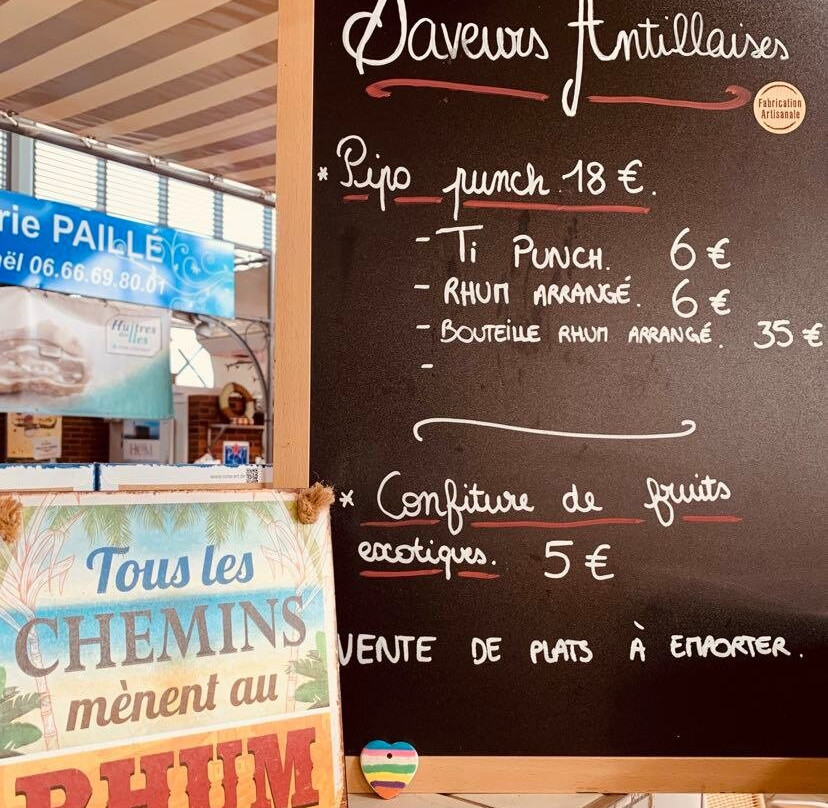 Saveurs Antillaises
Fabrication
Artisanale
* Pipo punch 18 €.
- Ti PUNCH. 6 €
- RHUM ARRANGÉ. 6 €
- BOUTEILLE RHUM ARRANGÉ. 35 €
-
* Confiture de fruits
exotiques. 5 €
VENTE DE PLATS À EMPORTER.
rie PAILLÉ
ël 06.66.69.80.01
Huîtres
des Îles
Tous les
CHEMINS
mènent au
RHUM